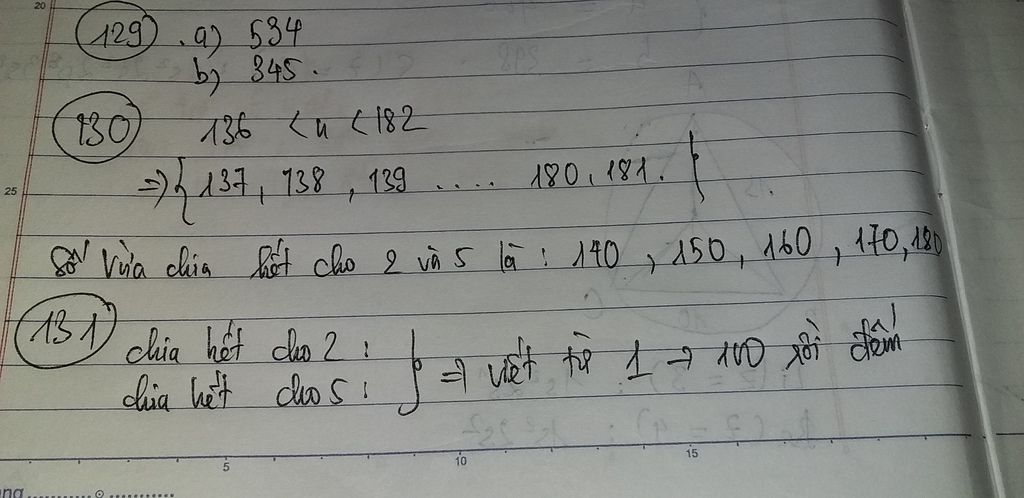 129 . a) 534
b) 345.
130 136 < n < 182
=> { 137, 138, 139 .... 180, 181. }
Số vừa chia hết cho 2 và 5 là : 140, 150, 160, 170, 180
131 chia hết cho 2 : } => viết từ 1 -> 100 rồi đếm
chia hết cho 5 :
20
25
5 10 15